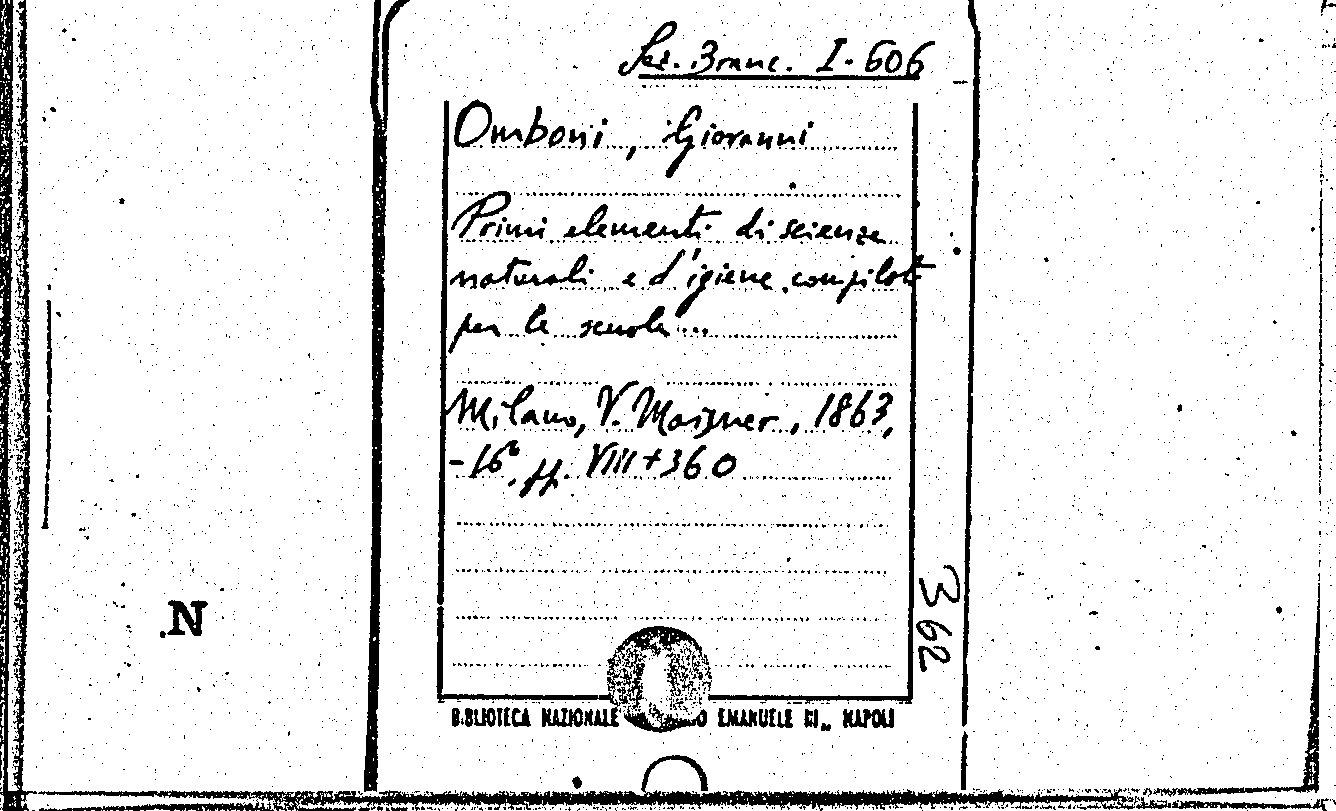 Sez. Branc. I. 606
Omboni, Giovanni
Primi elementi di scienze
naturali e d'igiene compilati
per le scuole...
Milano, V. Maisner, 1863,
-16° pp. VIII+360
362
N
BIBLIOTECA NAZIONALE EMANUELE III„ NAPOLI